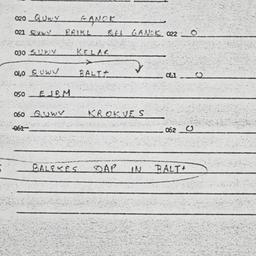 020 QUWV GANOK
021 QUWV PRIKL BEI GANOK 022 0
030 QUWV KELAR
040 QUWV BALT+ 041 0
050 EJBM
060 QUWV KROKVES
061 062 0
BALEKES DAP IN BALT+